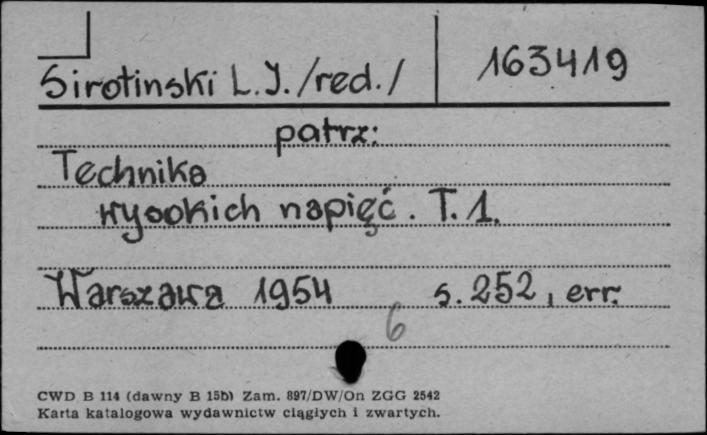 Sirotinski L.J. /red./
163419
patrz:
Technika
wysokich napięć. T. 1.
Warszawa 1954 s. 252, err.
6
CWD B 114 (dawny B 15b) Zam. 897/DW/On ZGG 2542
Karta katalogowa wydawnictw ciągłych i zwartych.